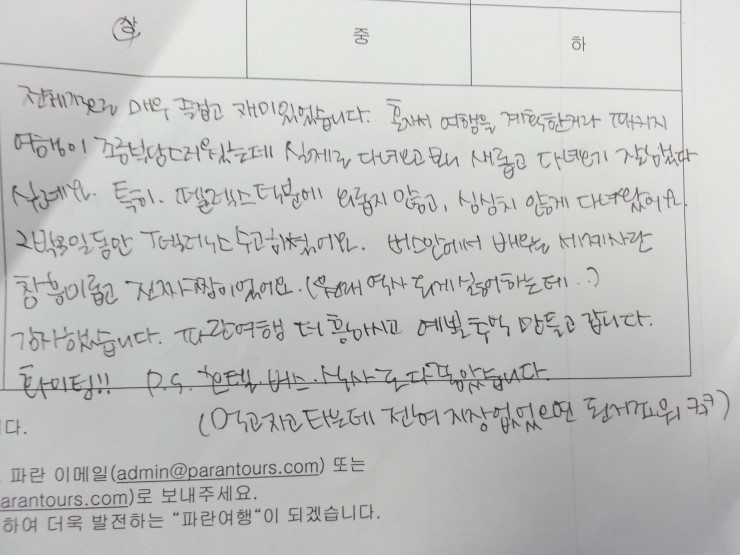 상 중 하
전체적으로 매우 즐겁고 재미있었습니다. 혼자서 여행을 계획한거라 패키지
여행이 조금 부담스러웠는데 실제로 다녀오고 보니 새롭고 다녀오기 잘했다
싶네요. 특히. 덕분에 외롭지 않고, 심심치 않게 다녀왔어요.
동안 수고하셨어요. 버스안에서 배우는 세계사란
참 흥미롭고 진짜 짱이었어요. (원래 역사 되게 싫어하는데..)
감사했습니다. 파란여행 더 흥하시고 예쁜 추억 만들고 갑니다.
화이팅!! P.S. 호텔. 버스. 식사 모두 다 좋았습니다.
(먹고자고타는데 전혀 지장없었으면 된거죠뭐 ㅋㅋ)
다.
파란 이메일(admin@parantours.com) 또는
arantours.com)로 보내주세요.
하여 더욱 발전하는 "파란여행"이 되겠습니다.